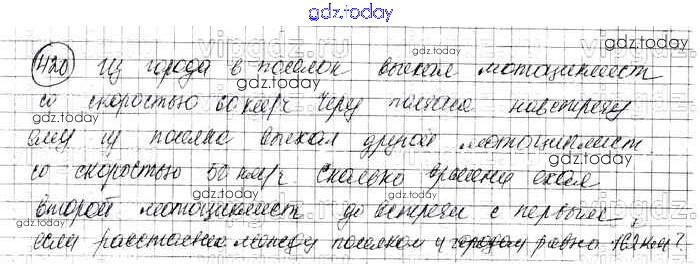 gdz.today
420 Из города в поселок выехал мотоциклист
со скоростью 60 км/ч Через полчаса навстречу
ему из поселка выехал другой мотоциклист
со скоростью 50 км/ч Сколько времени ехал
второй мотоциклист до встречи с первым,
если расстояние между поселком и городом равно 162 км?
vipgdz.ru
gdz.today
gdz.today
gdz.today
gdz.today
gdz.today
gdz.today
gdz.today
gdz.today